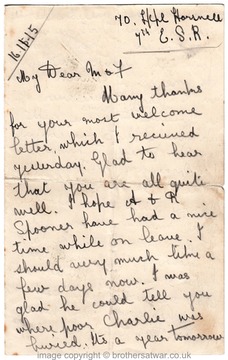 70. L/Cpl Horsnell
7th E.S.R.
16/11/15
My Dear M & F
Many thanks
for your most welcome
letter, which I recieved
yesterday. Glad to hear
that you are all quite
well. I hope A & R
Spooner have had a nice
time while on leave. I
should very much like a
few days now. I was
glad he could tell you
where poor Charlie was
buried. Its a year tomorrow
Image copyright © brothersatwar.co.uk